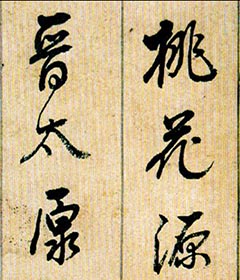 桃花源
晉太原